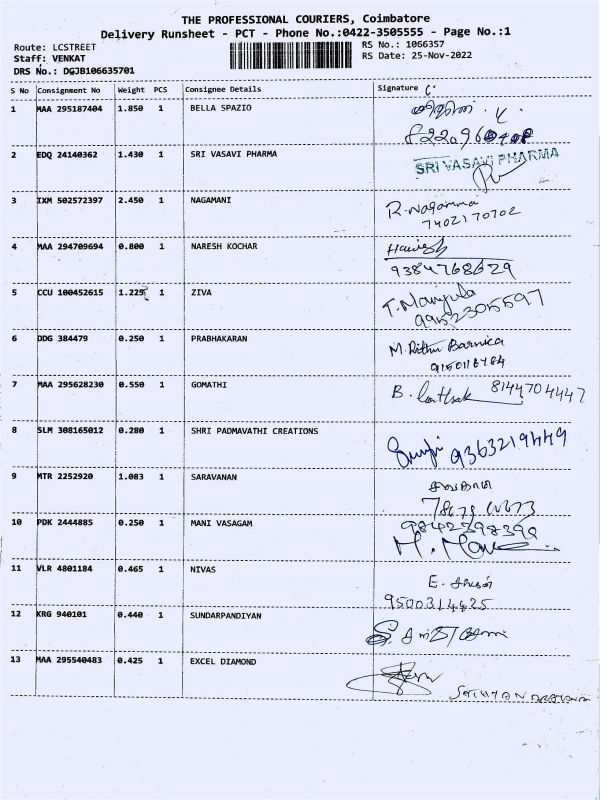 THE PROFESSIONAL COURIERS, Coimbatore
Delivery Runsheet - PCT - Phone No.:0422-3505555 - Page No.:1
Route: LCSTREET
Staff: VENKAT
DRS No.: DGJB106635701
RS No.: 1066357
RS Date: 25-Nov-2022
S No Consignment No Weight PCS Consignee Details Signature
1 MAA 295187404 1.850 1 BELLA SPAZIO
2 EDQ 24140362 1.430 1 SRI VASAVI PHARMA SRI VASAVI PHARMA
3 IXM 502572397 2.450 1 NAGAMANI R. Nagamma
7402170702
4 MAA 294709694 0.800 1 NARESH KOCHAR Harish
9384768629
5 CCU 100452615 1.225 1 ZIVA T. Manjula
9952305597
6 DDG 384479 0.250 1 PRABHAKARAN M. Rithu Barnica
7 MAA 295628230 0.550 1 GOMATHI B. 8144704447
8 SLM 308165012 0.280 1 SHRI PADMAVATHI CREATIONS 9363219449
9 MTR 2252920 1.003 1 SARAVANAN சரவணன்
10 PDK 2444885 0.250 1 MANI VASAGAM
11 VLR 4801184 0.465 1 NIVAS E.
9500314425
12 KRG 940101 0.440 1 SUNDARPANDIYAN
13 MAA 295540483 0.425 1 EXCEL DIAMOND